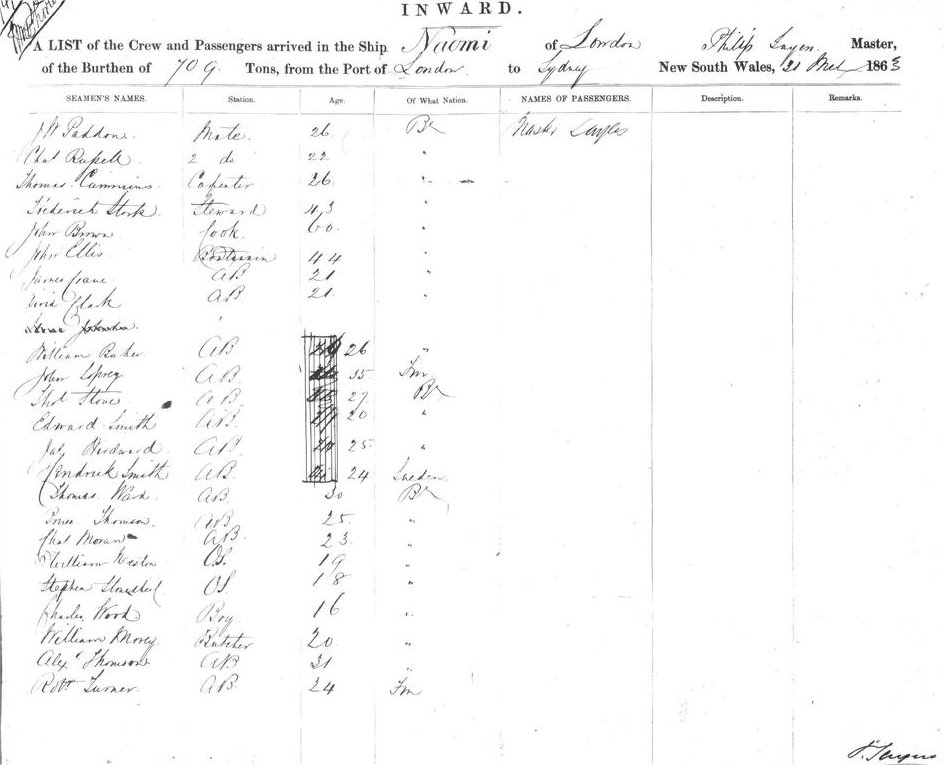 INWARD.
A LIST of the Crew and Passengers arrived in the Ship Naomi of London Philip Master,
of the Burthen of 709 Tons, from the Port of London to Sydney New South Wales, 1863
SEAMEN'S NAMES. Station. Age. Of What Nation. NAMES OF PASSENGERS. Description. Remarks.
J W Paddone Mate. 26. Br Master
Chas Russell 2 do 22 "
Thomas Cummins Carpenter 26 "
Frederick Stork Steward 43 "
John Brown Cook. 60. "
John Ellis Boatswain 44 "
James Crane AB 21 "
David Clark AB 21 "
William Baker AB 26 "
John AB 35 Fm
Thos Stone AB 27 Br
Edward Smith AB 20 "
Jas Woodward AB 25 "
Hendrick Smith AB 24 Sweden
Thomas Ward AB 30 Br
Thomson AB 25 "
Chas Moran AB 23 "
William Weston O.S. 19 "
Stephen O.S. 18 "
Charles Wood Boy 16 "
William Morey Butcher 20 "
Alexr Thomson AB 31 "
Robt Turner AB 24 Fm